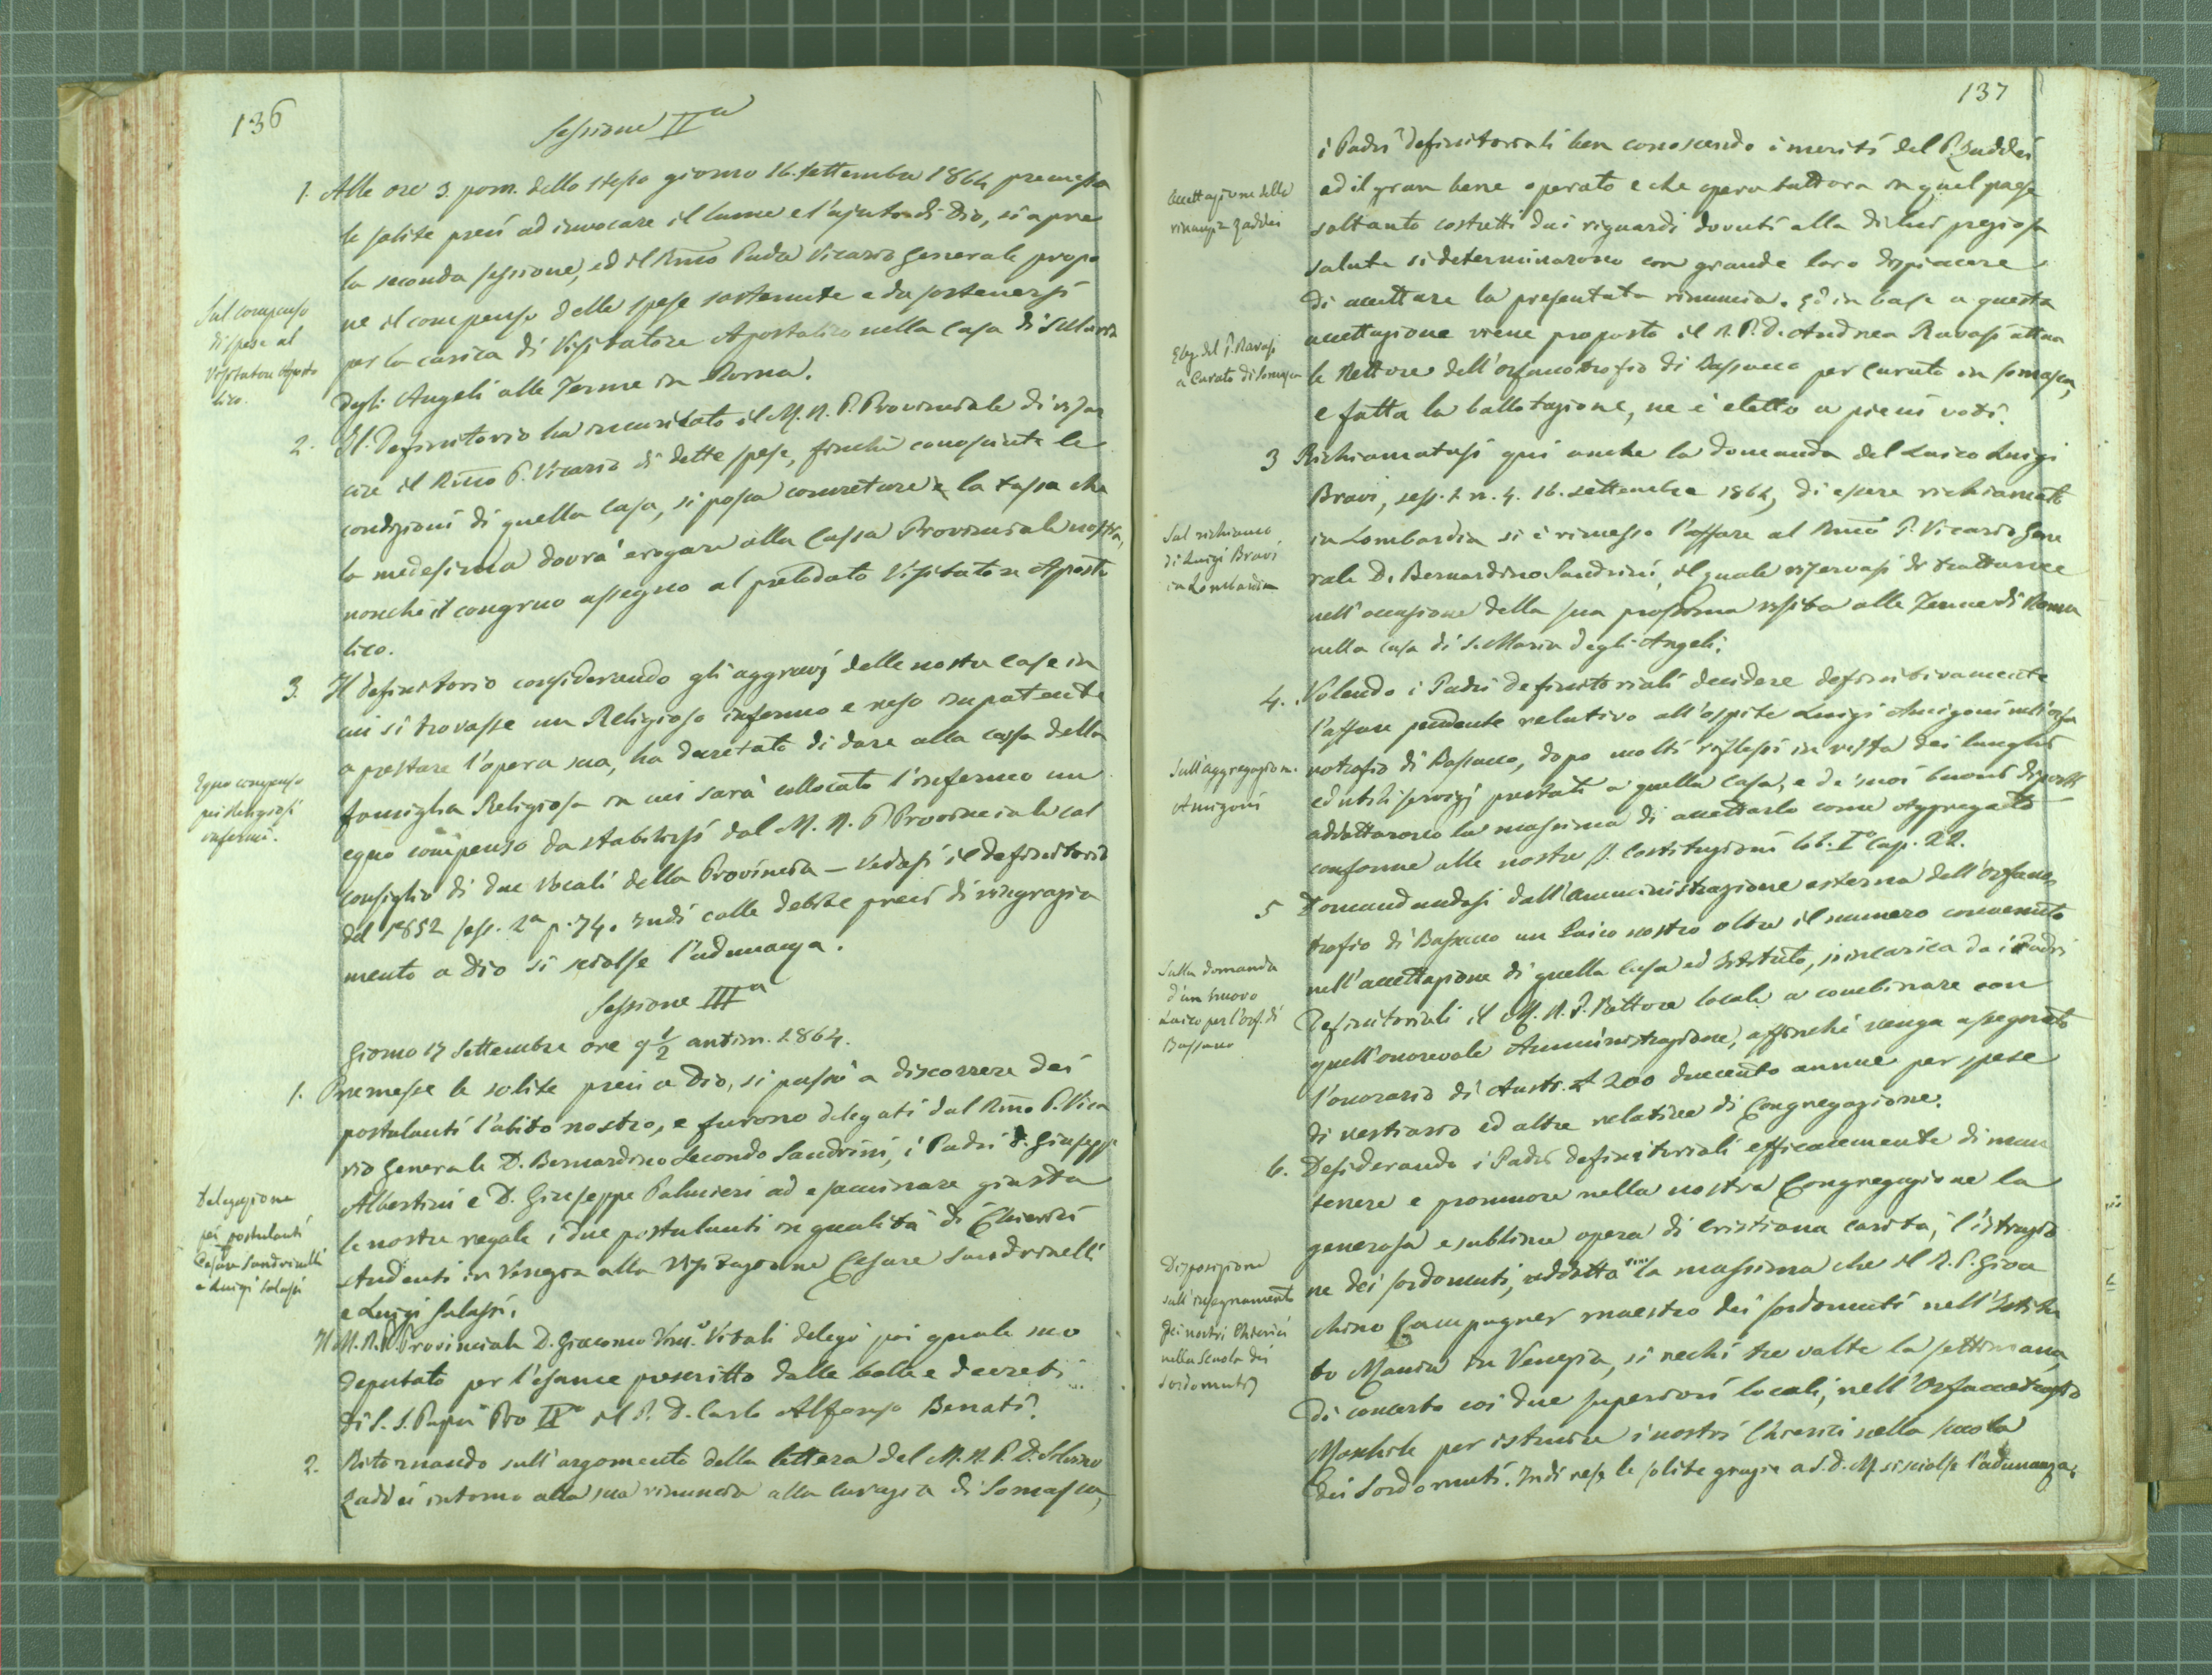 136
Sessione IIa
1. Alle ore 3 pom. dello stesso giorno 16. settembre 1864 premesse
le solite preci ad invocare il lume e l'ajuto di Dio, si apre
la seconda sessione, ed il Rmo Padre Vicario Generale propo
ne il compenso delle spese sostenute e da sostenersi
per la carica di Visitatore Apostolico nella Casa di S. Maria
degli Angeli alle Terme in Roma.
Sul compenso
di spese al
Visitatore Aposto
lico.
2. Il Definitorio ha incaricato il M. R. P. Provinciale di rifar
cire il Rmo P. Vicario di dette spese, finchè conosciute le
condizioni di quella Casa, si possa concretare la tassa che
la medesima dovrà erogare alla Cassa Provinciale nostra,
nonchè il congruo assegno al prelodato Visitatore Aposto
lico.
3. Il Definitorio considerando gli aggravj delle nostre Case in
cui si trovasse un Religioso infermo e reso impotente
a prestare l'opera sua, ha decretato di dare alla cassa della
famiglia Religiosa in cui sarà collocato l'infermo un
equo compenso da stabilirsi dal M. R. P. Provinciale col
consiglio di due Vocali della Provincia – Vedasi il Definitorio
del 1852 sess. 2a p. 74. Indi colle debite preci di ringrazia
mento a Dio si sciolse l'adunanza.
Equo compenso
pei Religiosi
infermi.
Sessione IIIa
Giorno 17 Settembre ore 9 1/2 antim. 1864.
1. Premesse le solite preci a Dio, si passò a discorrere dei
postulanti l'abito nostro, e furono delegati dal Rmo P. Vica
rio Generale D. Bernardino Secondo Sandrini, i Padri D. Giuseppe
Albertini e D. Giuseppe Palmieri ad esaminare giusta
le nostre regole i due postulanti in qualità di Chierici
studenti in Venezia alla Visitazione Cesare Sandrinelli
e Luigi Salassi.
Delegazione
pei postulanti
Cesare Sandrinelli
e Luigi Salassi
Il M. R. P. Provinciale D. Giacomo Vinc.o Vitali delegò poi quale suo
deputato per l'esame prescritto dalle bolle e decreti
di S. S. Papa Pio IX° il P. D. Carlo Alfonso Benati.
2. Ritornando sull'argomento della lettera del M. R. P. D. Silvino
Zaddei intorno alla sua rinuncia alla Curazia di Somasca,
137
i Padri Definitoriali ben conoscendo i meriti del P. Zaddei
ed il gran bene operato e che opera tuttora in quel paese
soltanto costretti dai riguardi dovuti alla di lui preziosa
salute si determinarono con grande loro dispiacere
di accettare la presentata rinuncia. Ed in base a questa
accettazione viene proposto il R. P. D. Andrea Ravasi attua
le Rettore dell'orfanotrofio di Bassano per Curato in Somasca,
e fatta la ballotazione, ne è eletto a pieni voti.
Accettazione della
rinunzia Zaddei
Elez. del P. Ravasi
a Curato di Somasca
3 Richiamatasi qui anche la domanda del Laico Luigi
Bravi, sess. 1 n. 4. 16. settembre 1864, di essere richiamato
in Lombardia si è rimesso l'affare al Rmo P. Vicario Gene
rale D. Bernardino Sandrini, il quale riservasi di trattarne
nell'occasione della sua prossima visita alle Terme di Roma
nella Casa di S. Maria degli Angeli.
Sul richiamo
di Luigi Bravi
in Lombardia
4. Volendo i Padri Definitoriali decidere definitivamente
l'affare pendente relativo all'ospite Luigi Amigoni nell'orfa
notrofio di Bassano, dopo molti riflessi in vista dei lunghi
ed utili servizj prestati a quella Casa, e de' suoi buoni diporti
addottarono la massima di accettarlo come Aggregato
conforme alle nostre S. Costituzioni lib. I° Cap. 22.
Sull'aggregazion.
Amigoni
5 Domandandosi dall'amministrazione esterna dell'orfano
trofio di Bassano un Laico nostro oltre il numero convenuto
nell'accettazione di quella Casa ed Istituto, s'incarica da i Padri
Definitoriali il M. R. P. Rettore locale a combinare con
quell'onorevole Amministrazione, affinchè venga assegnato
l'onorario di Austr. £ 200 duecento annue per spese
di vestiario ed altre relative di Congregazione.
Sulla domanda
d'un nuovo
Laico per l'orf. di
Bassano
6. Desiderando i Padri Definitoriali efficacemente di man
tenere e promuovere nella nostra Congregazione la
generosa e sublime opera di cristiana carità, l'istruzio
ne dei sordomuti, addotta la massima che il R. P. Gioa
chino Campagner maestro dei sordomuti nell'Istitu
to Manin in Venezia, si rechi tre volte la settimana,
di concerto coi due superiori locali, nell'Orfanotrofio
Maschile per istruire i nostri Chierici nella scuola
dei Sordomuti. Indi rese le solite grazie a S. D. M. si sciolse l'adunanza.
Disposizione
sull'insegnamento
dei nostri Chierici
nella scuola dei
sordomuti